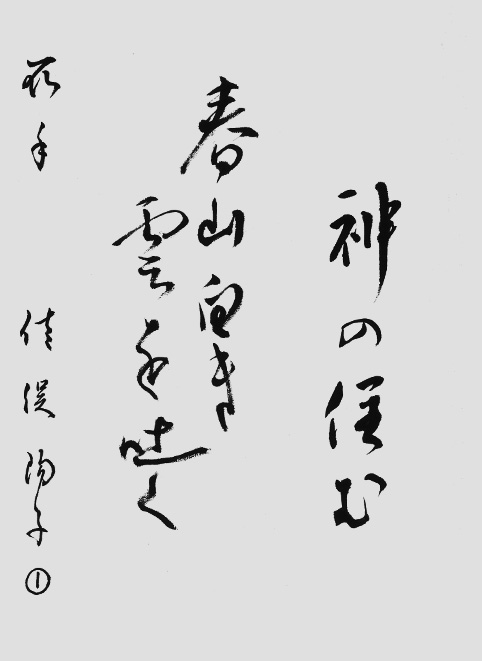 神の住む
春山白き
雲を吐く
岩手 佳俣陽子 ①